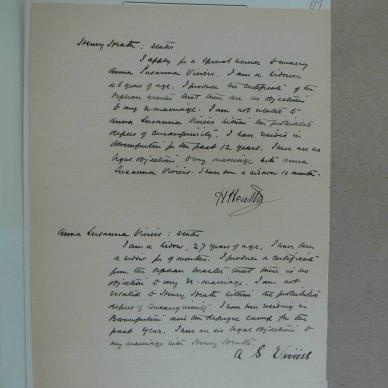 Henry Heath: states
I apply for a special licence to marry
Anna Susanna Viviers. I am a widower
46 years of age. I produce the certificate of the
orphan master that there are no objections
to my re-marriage. I am not related to
Anna Susanna Viviers within the prohibited
degrees of consanguinity. I have resided in
Bloemfontein for the past 12 years. There are no
legal objections to my marriage with Anna
Susanna Viviers. I have been a widower 10 months.
H Heath
Anna Susanna Viviers: states
I am a widow, 27 years of age. I have been
a widow for 9 months. I produce a certificate
from the orphan master that there is no
objection to my re-marriage. I am not
related to Henry Heath within the prohibited
degrees of consanguinity. I have been residing in
Bloemfontein and the refugee camp for the
past year. There are no legal objections to
my marriage with Henry Heath.
A S Viviers